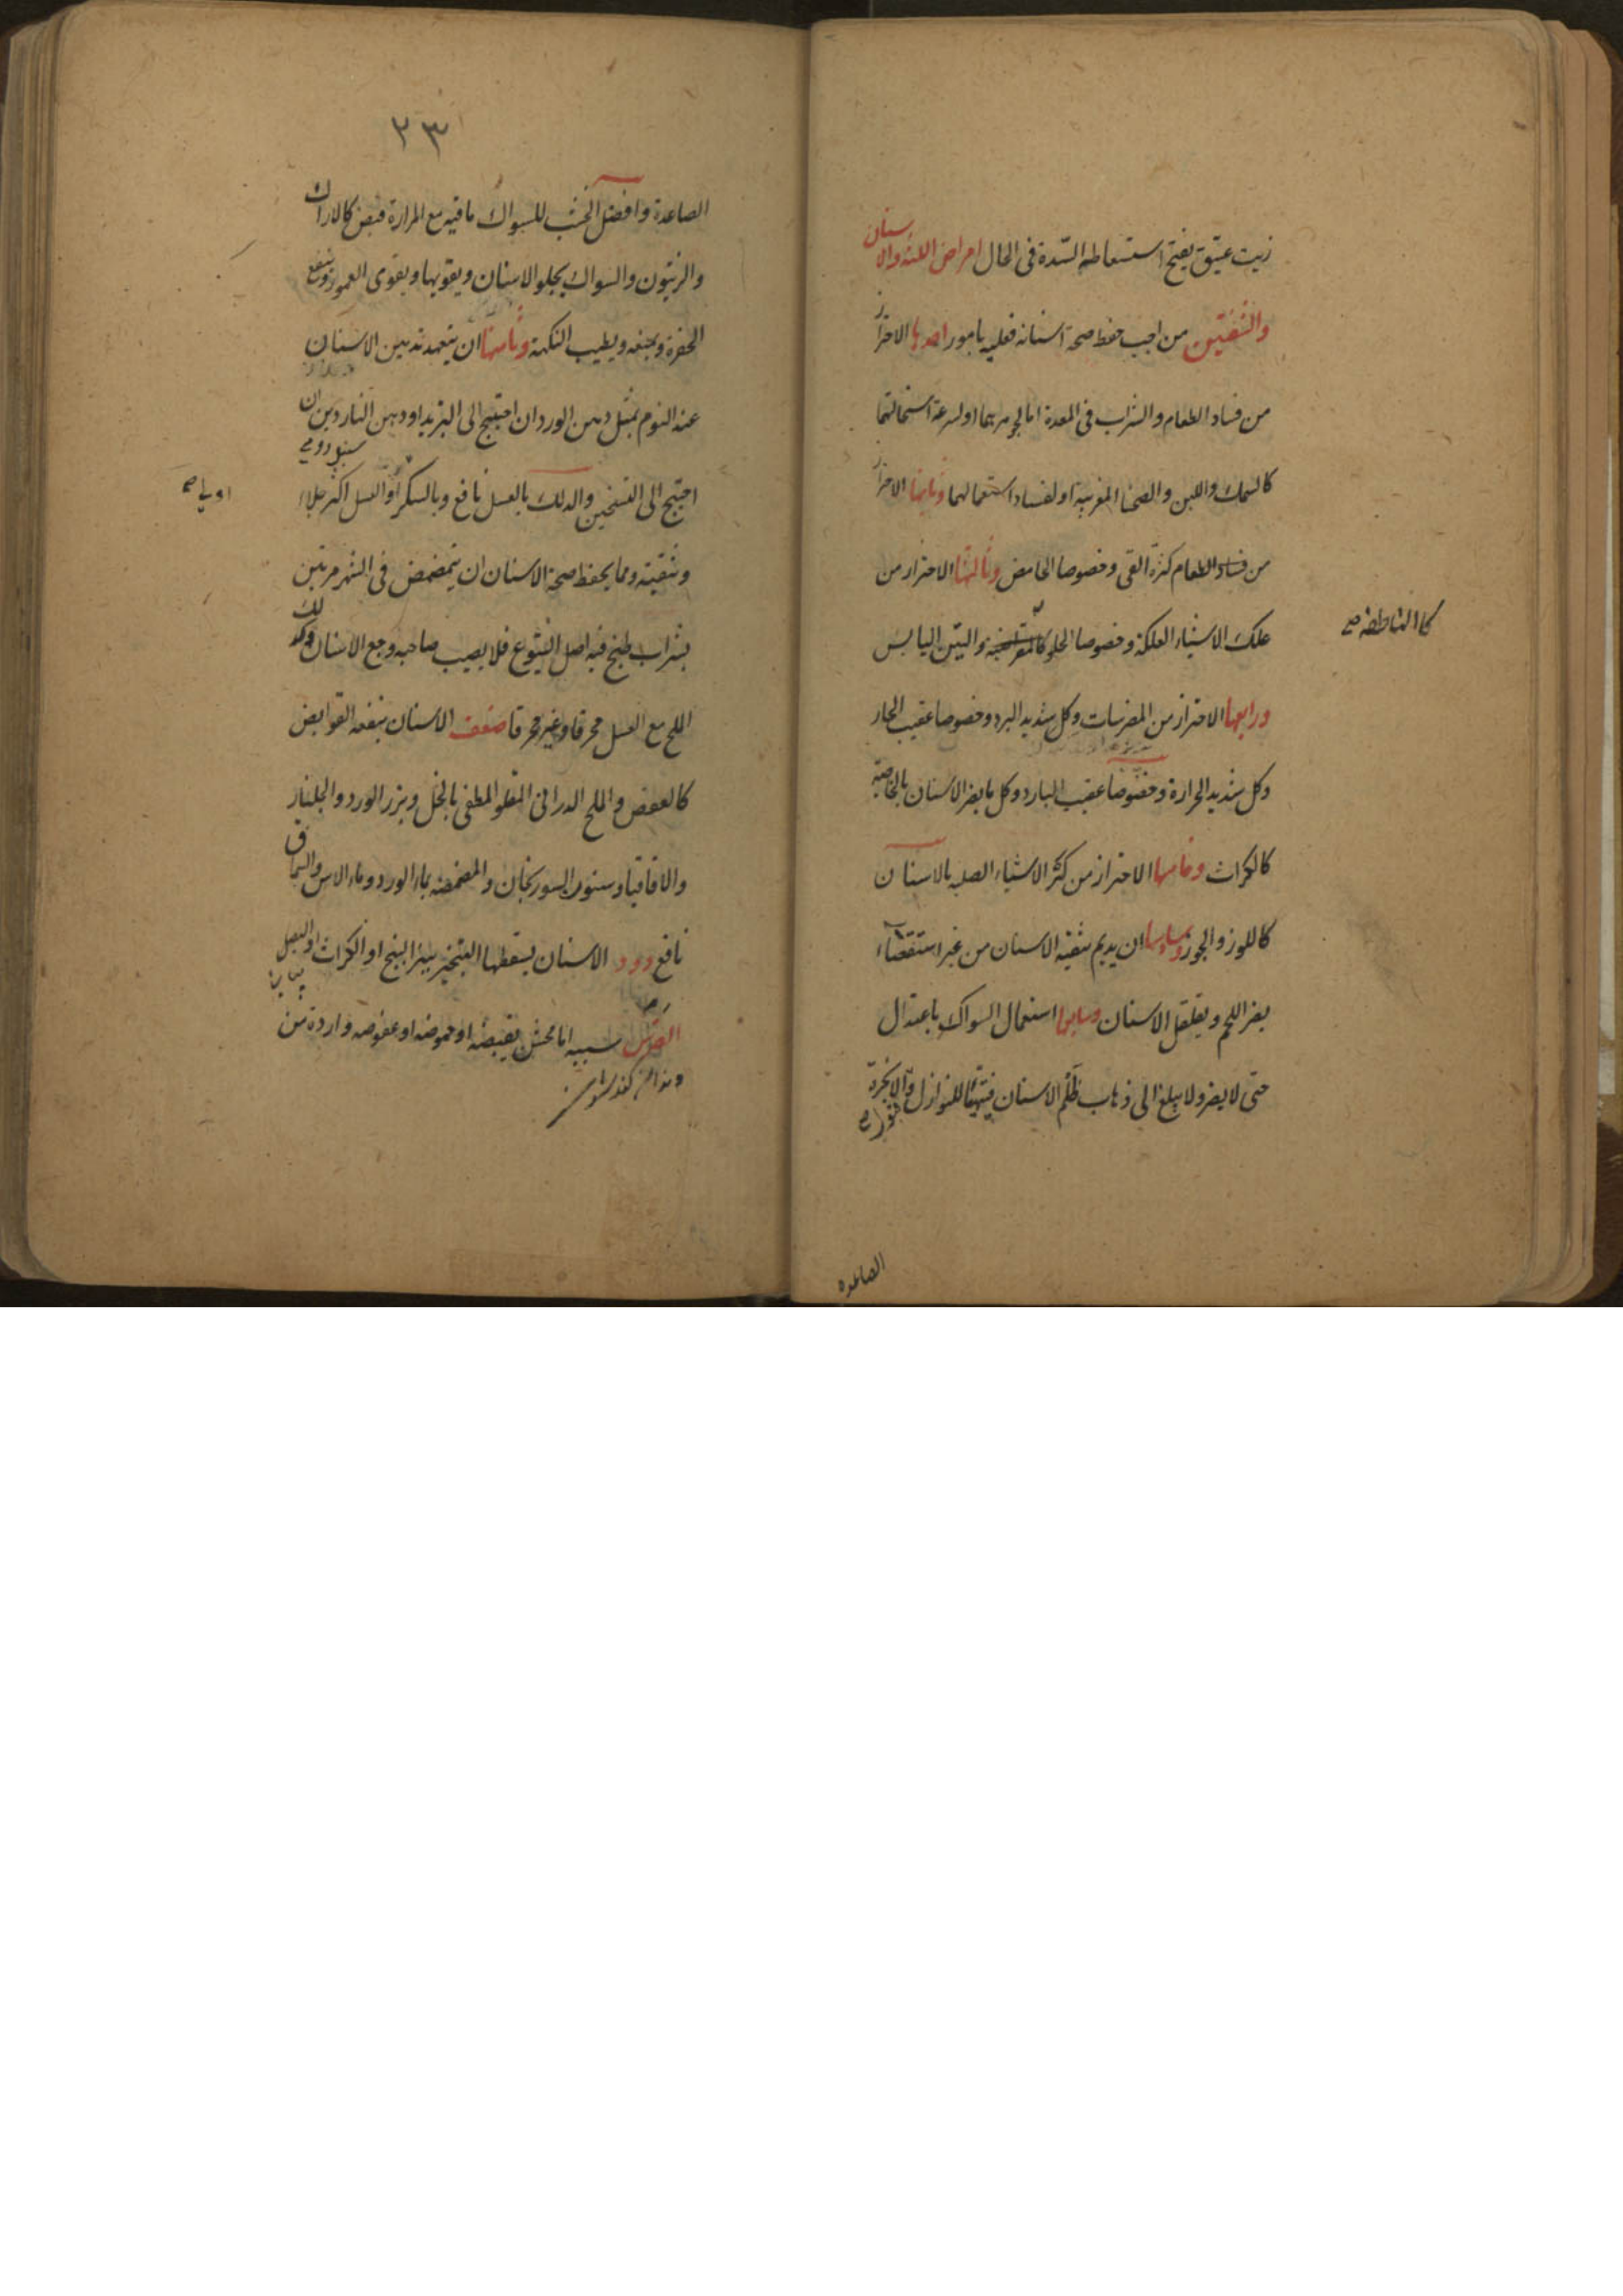 زيت عتيق يفتح استسعاطه السدة فى الحال امراض اللثة والاسنان
والشفتين من احب حفظ صحة اسنانه فعليه بامور احدها الاحتراز
من فساد الطعام والشراب فى المعدة اما لجوهرهما او لسرعة استحالتهما
كالسمك واللبن والصحنا المغربية او لفساد استعمالهما وثانيها الاحتراز
من فساد الطعام كثرة القى وخصوصا الحامض وثالثها الاحتراز من
علك الاشياء العلكة وخصوصا الحلو والتين اليابس
كالناطف صح
ورابعها الاحتراز من المضرسات وكل شديد البرد وخصوصا عقيب الحار
وكل شديد الحرارة وخصوصا عقيب البارد وكل ما يضر الاسنان بالخاصية
كالكراث وخامسها الاحتراز من كسر الاشياء الصلبة بالاسنان
كاللوز والجوز وسادسها ان يديم تنقية الاسنان من غير استقصاء
يضر اللحم ويقلقل الاسنان وسابعها استعمال السواك باعتدال
حتى لا يضر ولا يبلغ الى ذهاب ظلم الاسنان فيتهيأ للنوازل والابخرة
الصاعدة
٢٣
الصاعدة وافضل الخشب للسواك ما فيه مع المرارة قبض كالاراك
والزيتون والسواك يجلو الاسنان ويقويها ويقوى العمور وينفع
الحفرة ويمنعه ويطيب النكهة وثامنها ان يتعهد تدهين الاسنان
عند النوم بمثل دهن الورد ان احتيج الى التبريد او دهن الناردين ان
سنبل رومى
احتيج الى التسخين والدلك بالعسل نافع وبالسكر او العسل اكثر جلاء
وتنقية ومما يحفظ صحة الاسنان ان يتمضمض فى الشهر مرتين
بشراب طبخ فيه اصل اليتوع فلا يصيب صاحبه وجع الاسنان وكذلك
الملح مع العسل محرقا وغير محرقا ضعف الاسنان ينفعه القوابض
كالعفص والملح الدرانى المقلو المطفى بالخل وبزر الورد والجلنار
والاقاقيا وسنون السورنجان والمضمضة بماء الورد وماء الاس والسماق
نافع دود الاسنان يسقطها التبخير ببزر البنج او الكراث او البصل
الضرس سببه اما مخشن بقبضه او حموضه او عفوصه واردة من